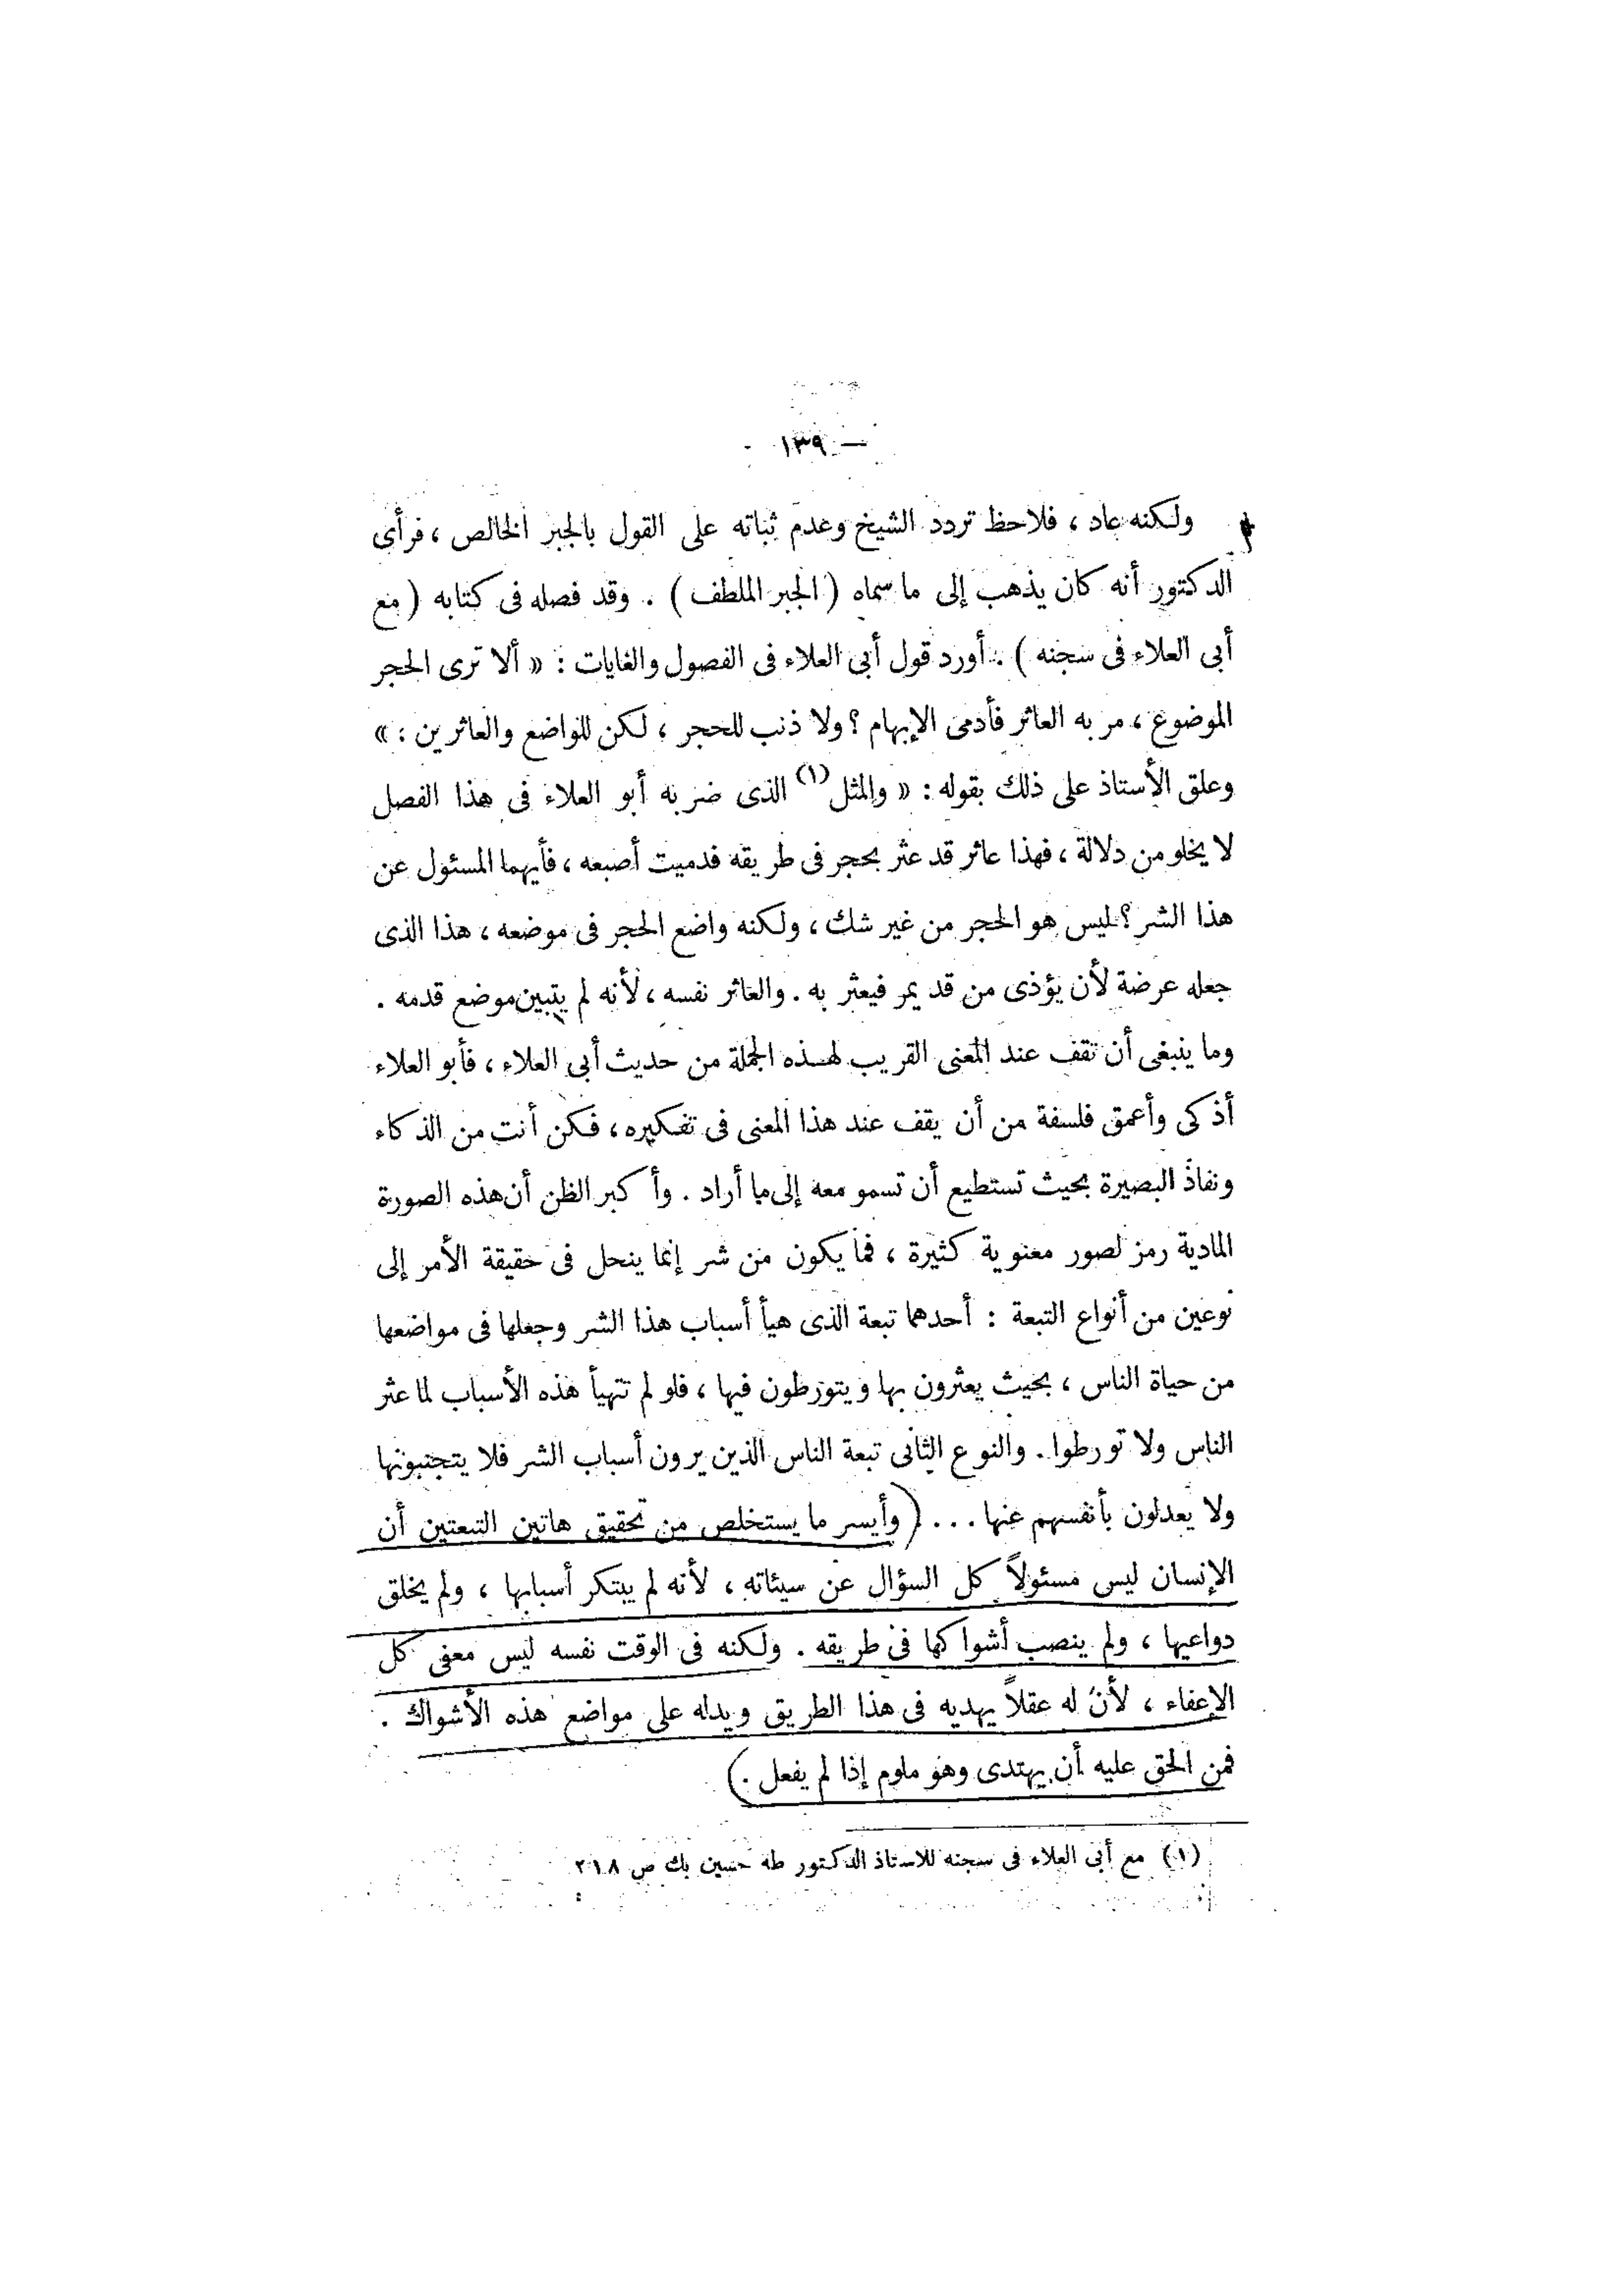 — ١٣٩ -
ولكنه عاد ، فلاحظ تردد الشيخ وعدم ثباته على القول بالجبر الخالص ، فرأى
الدكتور أنه كان يذهب إلى ما سماه ( الجبر الملطف ) . وقد فصله فى كتابه ( مع
أبى العلاء فى سجنه ) . أورد قول أبى العلاء فى الفصول والغايات : « ألا ترى الحجر
الموضوع ، مر به العاثر فأدمى الإبهام ؟ ولا ذنب للحجر ، لكن للواضع والعاثرين : »
وعلق الأستاذ على ذلك بقوله : « والمثل (١) الذى ضربه أبو العلاء فى هذا الفصل
لا يخلو من دلالة ، فهذا عاثر قد عثر بحجر فى طريقه فدميت أصبعه ، فأيهما المسئول عن
هذا الشر ؟ ليس هو الحجر من غير شك ، ولكنه واضع الحجر فى موضعه ، هذا الذى
جعله عرضة لأن يؤذى من قد يمر فيعثر به . والعاثر نفسه ، لأنه لم يتبين موضع قدمه .
وما ينبغى أن تقف عند المعنى القريب لهذه الجملة من حديث أبى العلاء ، فأبو العلاء
أذكى وأعمق فلسفة من أن يقف عند هذا المعنى فى تفكيره ، فكن أنت من الذكاء
ونفاذ البصيرة بحيث تستطيع أن تسمو معه إلى ما أراد . وأكبر الظن أن هذه الصورة
المادية رمز لصور معنوية كثيرة ، فما يكون من شر إنما ينحل فى حقيقة الأمر إلى
نوعين من أنواع التبعة : أحدهما تبعة الذى هيأ أسباب هذا الشر وجعلها فى مواضعها
من حياة الناس ، بحيث يعثرون بها ويتورطون فيها ، فلو لم تتهيأ هذه الأسباب لما عثر
الناس ولا تورطوا . والنوع الثانى تبعة الناس الذين يرون أسباب الشر فلا يتجنبونها
ولا يعدلون بأنفسهم عنها ... ( وأيسر ما يستخلص من تحقيق هاتين التبعتين أن
الإنسان ليس مسئولاً كل السؤال عن سيئاته ، لأنه لم يبتكر أسبابها ، ولم يخلق
دواعيها ، ولم ينصب أشواكها فى طريقه . ولكنه فى الوقت نفسه ليس معفى كل
الإعفاء ، لأن له عقلاً يهديه فى هذا الطريق ويدله على مواضع هذه الأشواك .
فمن الحق عليه أن يهتدى وهو ملوم إذا لم يفعل . )
(١) مع أبى العلاء فى سجنه للاستاذ الدكتور طه حسين بك ص ٢١٨